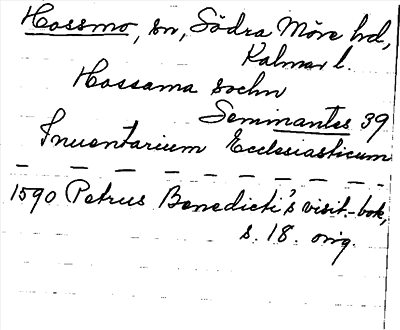 Hossmo, sn, Södra Möre hd,
Kalmar l.
Hossama sochn
Seminantes 39
Inuentarium Ecclesiasticum
1590 Petrus Benedicti's visit.-bok,
s. 18. orig.